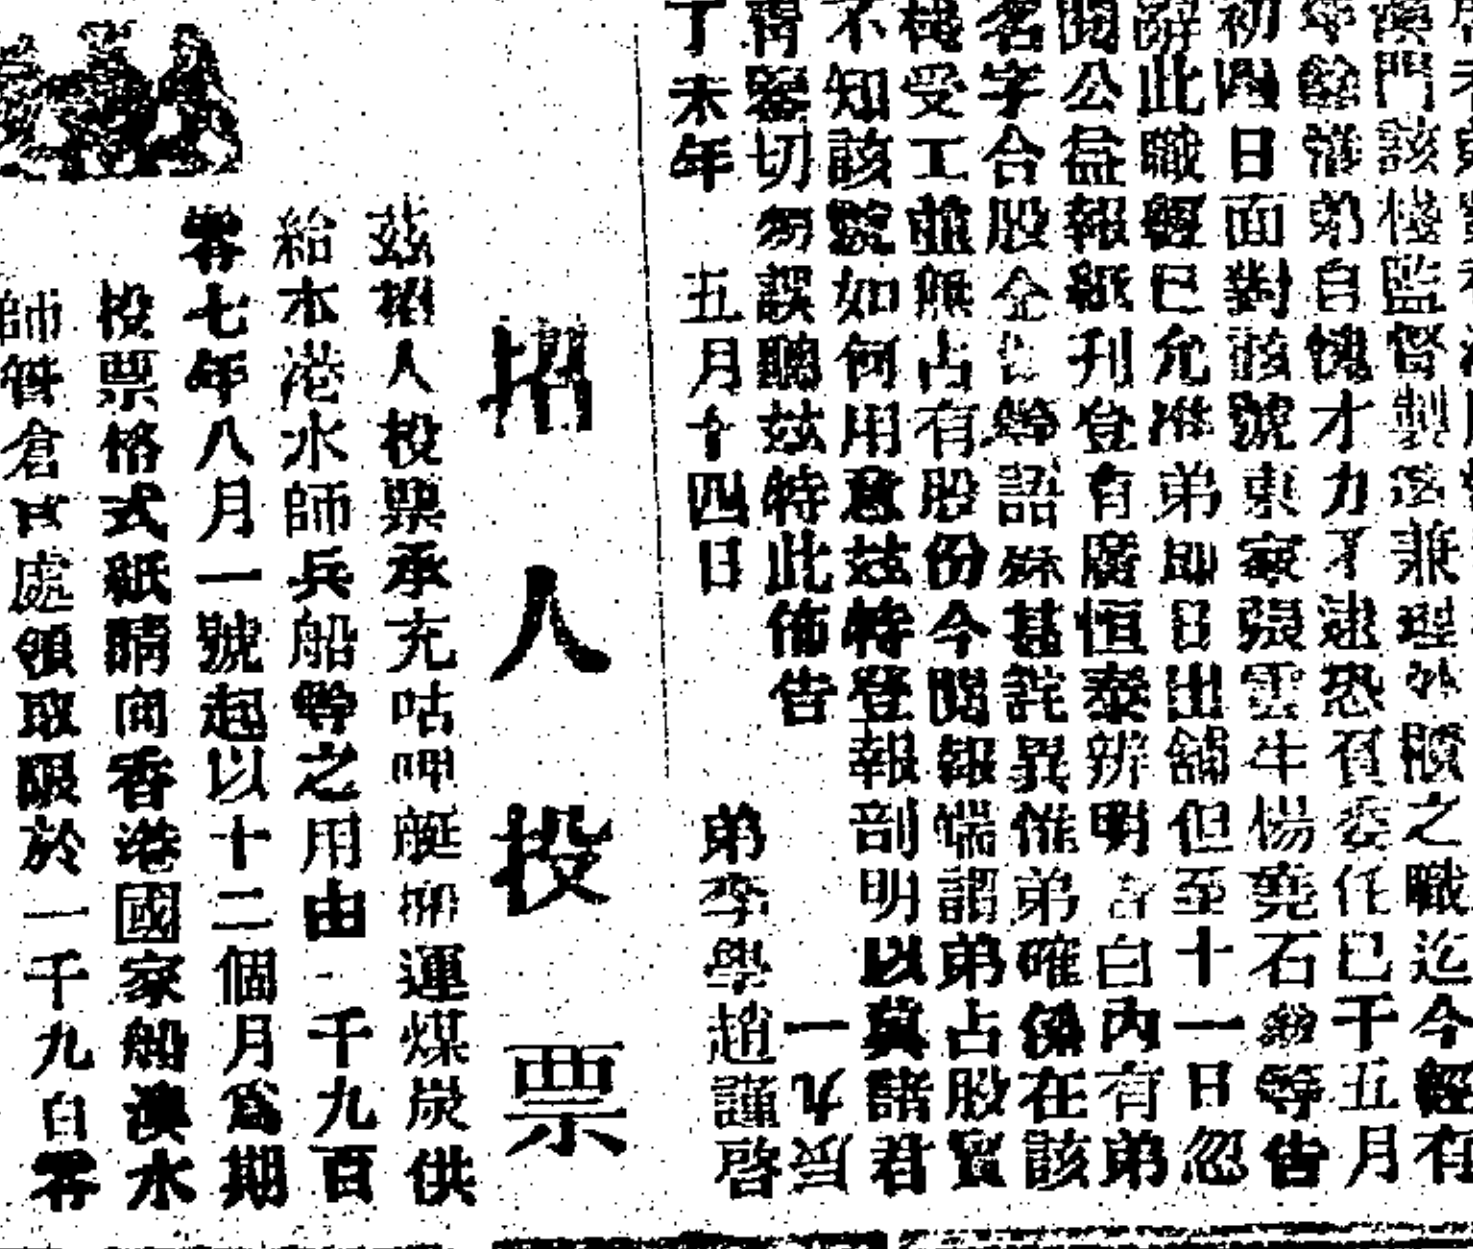 澳門該棧監督製造兼理外櫃之職迄今經有
年餘惟弟自愧才力不逮恐負委任已于五月
初四日面對該號東家張雲牛楊堯石翁等告
辭此職經已允准弟即日出舖但至十一日忽
閱公益報紙刊登有廣恒泰辨明告白內有弟
名字合股金等語殊甚詫異惟弟確係在該
棧受工並無占有股份今閱報端謂弟占股實
不知該號如何用意茲特登報剖明以冀諸君
青鑒切勿誤聽茲特此佈告
丁未年 五月十四日 弟李學趙謹啓
招人投票
茲招人投票承充咕呷艇 運煤炭供
給本港水師兵船等之用由一千九百
零七年八月一號起以十二個月為期
投票格式紙請向香港國家船澳水
師管倉 處領取限於一千九百零